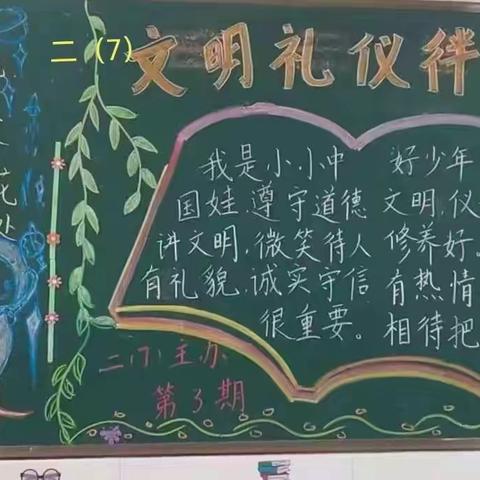 二（7）
文明礼仪伴
我是小小中
国娃,遵守道德
讲文明,微笑待人
有礼貌,诚实守信
很重要。
好少年
文明,仪
修养好。
有热情
相待把
二(7)主办
第3期
花